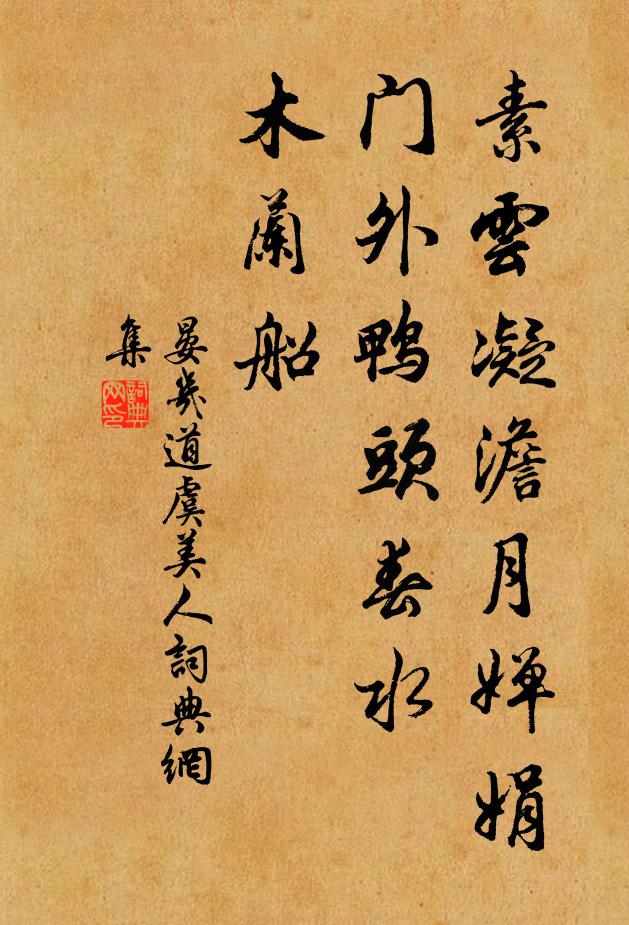 素雲凝澹月嬋娟
門外鴨頭春水
木蘭船
晏幾道虞美人詞典網
集
詞典網印